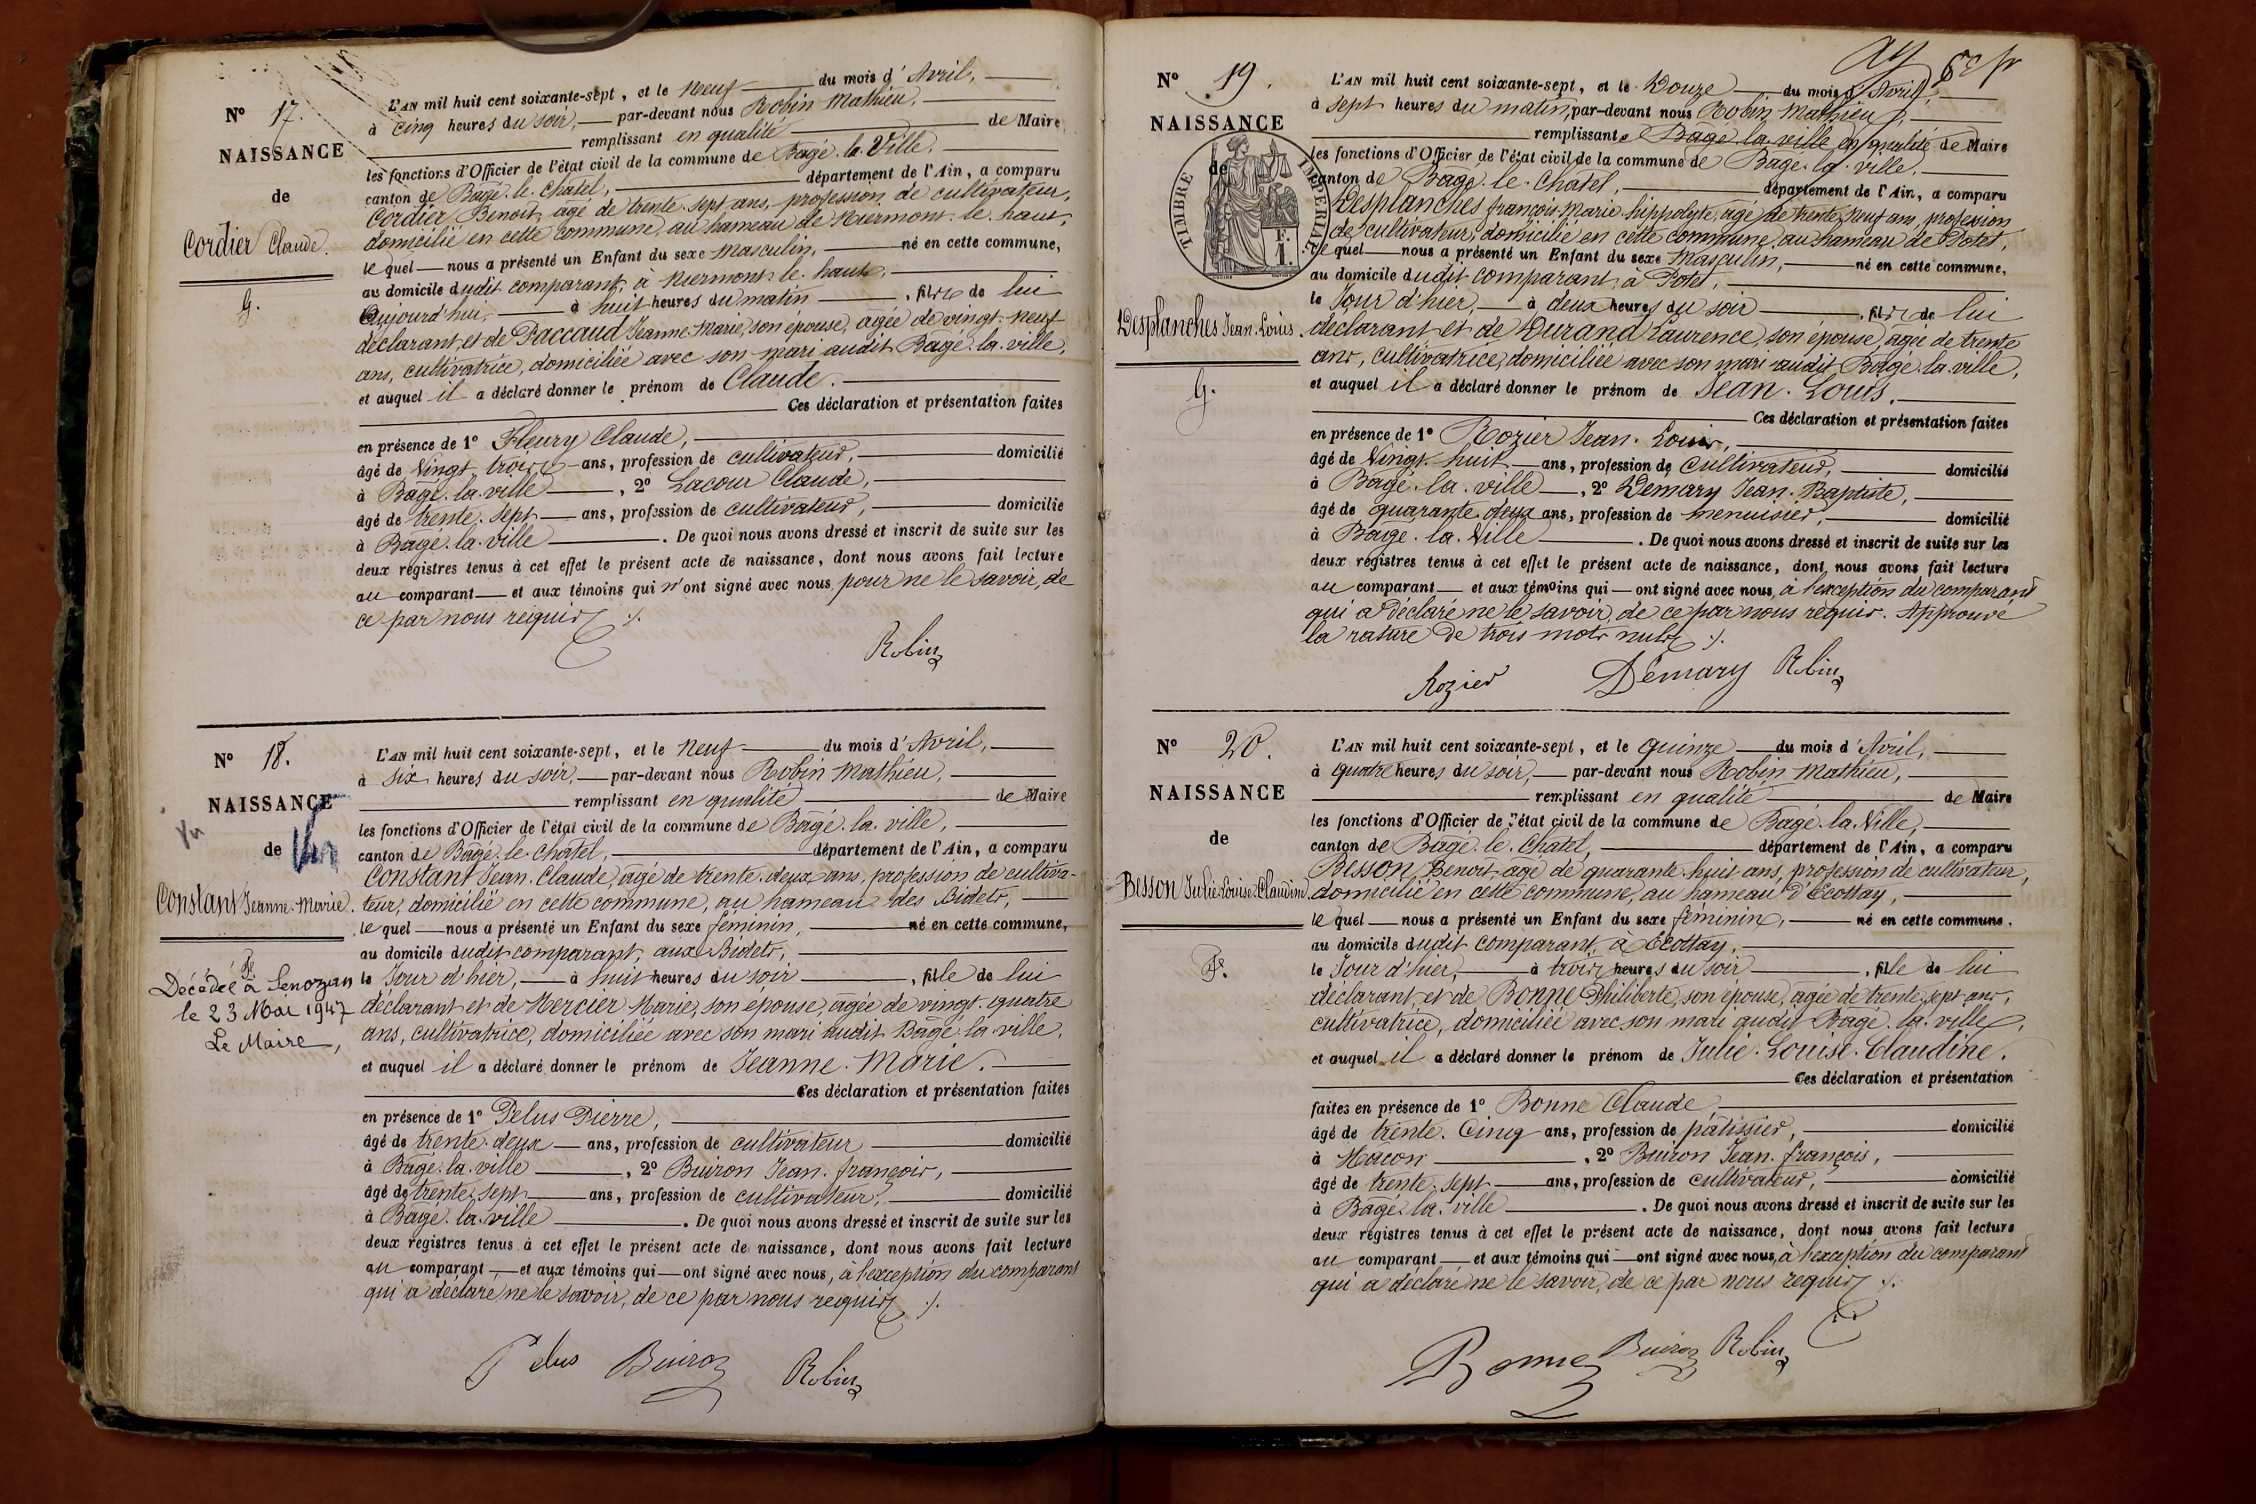 N° 17.
NAISSANCE
de
Cordier Claude.
G.
L'AN mil huit cent soixante-sept, et le Neuf du mois d'Avril,
à cinq heures du soir, par-devant nous Robin Mathieu,
remplissant en qualité de Maire
les fonctions d'Officier de l'état civil de la commune de Bâgé-la-Ville,
canton de Bâgé-le-Châtel, département de l'Ain, a comparu
Cordier Benoît, âgé de trente-sept ans, profession de cultivateur,
domicilié en cette commune, au hameau de Niermont-le-haut,
lequel nous a présenté un Enfant du sexe Masculin, né en cette commune,
au domicile dudit comparant, à Niermont-le-haut,
Aujourd'hui, à huit heures du matin, fils de lui
déclarant et de Paccaud Jeanne-Marie, son épouse, âgée de vingt-neuf
ans, cultivatrice, domiciliée avec son mari audit Bâgé-la-ville,
et auquel il a déclaré donner le prénom de Claude.
Ces déclaration et présentation faites
en présence de 1° Fleury Claude,
âgé de Vingt-trois ans, profession de cultivateur, domicilié
à Bâgé-la-ville, 2° Lacour Claude,
âgé de trente-sept ans, profession de cultivateur, domicilié
à Bâgé-la-ville. De quoi nous avons dressé et inscrit de suite sur les
deux registres tenus à cet effet le présent acte de naissance, dont nous avons fait lecture
au comparant et aux témoins qui n'ont signé avec nous, pour ne le savoir, de
ce par nous requis ./.
Robin
N° 18.
NAISSANCE
de
Vu
Constant Jeanne-Marie.
Fe
Décédée à Senozan
le 23 Mai 1947
Le Maire,
L'AN mil huit cent soixante-sept, et le Neuf du mois d'Avril,
à six heures du soir, par-devant nous Robin Mathieu,
remplissant en qualité de Maire
les fonctions d'Officier de l'état civil de la commune de Bâgé-la-ville,
canton de Bâgé-le-Châtel, département de l'Ain, a comparu
Constant Jean-Claude, âgé de trente-deux ans, profession de cultiva-
teur, domicilié en cette commune, au hameau des Bidets,
lequel nous a présenté un Enfant du sexe féminin, né en cette commune,
au domicile dudit comparant, aux Bidets,
le Jour d'hier, à huit heures du soir, fille de lui
déclarant et de Mercier Marie, son épouse, âgée de vingt-quatre
ans, cultivatrice, domiciliée avec son mari audit Bâgé-la-ville,
et auquel il a déclaré donner le prénom de Jeanne-Marie.
Ces déclaration et présentation faites
en présence de 1° Pelus Pierre,
âgé de trente-deux ans, profession de cultivateur domicilié
à Bâgé-la-ville, 2° Buiron Jean-françois,
âgé de trente-sept ans, profession de cultivateur, domicilié
à Bâgé-la-ville. De quoi nous avons dressé et inscrit de suite sur les
deux registres tenus à cet effet le présent acte de naissance, dont nous avons fait lecture
au comparant et aux témoins qui ont signé avec nous, à l'exception du comparant
qui a déclaré ne le savoir, de ce par nous requis ./.
Pelus Buiron Robin
N° 19.
NAISSANCE
de
TIMBRE IMPERIAL
F.
1.
Desplanches Jean-Louis.
G.
L'AN mil huit cent soixante-sept, et le Douze du mois d'Avril,
à sept heures du matin, par-devant nous Robin Mathieu,
remplissant Bâgé-la-ville en qualité de Maire
les fonctions d'Officier de l'état civil de la commune de Bâgé-la-ville,
canton de Bâgé-le-Châtel, département de l'Ain, a comparu
Desplanches françois-Marie-hippolyte, âgé de trente-neuf ans, profession
de cultivateur, domicilié en cette commune, au hameau de Potet,
lequel nous a présenté un Enfant du sexe Masculin, né en cette commune,
au domicile dudit comparant, à Potet,
le Jour d'hier, à deux heures du soir, fils de lui
déclarant et de Durand Laurence, son épouse, âgée de trente
ans, cultivatrice, domiciliée avec son mari audit Bâgé-la-ville,
et auquel il a déclaré donner le prénom de Jean-Louis.
Ces déclaration et présentation faites
en présence de 1° Rozier Jean-Louis,
âgé de Vingt-huit ans, profession de cultivateur, domicilié
à Bâgé-la-ville, 2° Demary Jean-Baptiste,
âgé de quarante-deux ans, profession de menuisier, domicilié
à Bâgé-la-Ville. De quoi nous avons dressé et inscrit de suite sur les
deux registres tenus à cet effet le présent acte de naissance, dont nous avons fait lecture
au comparant et aux témoins qui ont signé avec nous, à l'exception du comparant
qui a déclaré ne le savoir, de ce par nous requis. Approuvé
la rature de trois mots nuls ./.
Rozier Demary Robin
N° 20.
NAISSANCE
de
Besson Julie-Louise-Claudine
Fe.
L'AN mil huit cent soixante-sept, et le quinze du mois d'Avril,
à quatre heures du soir, par-devant nous Robin Mathieu,
remplissant en qualité de Maire
les fonctions d'Officier de l'état civil de la commune de Bâgé-la-Ville,
canton de Bâgé-le-Châtel, département de l'Ain, a comparu
Besson Benoît, âgé de quarante-huit ans, profession de cultivateur,
domicilié en cette commune, au hameau d'Ecottay,
lequel nous a présenté un Enfant du sexe féminin, né en cette commune,
au domicile dudit comparant, à Ecottay,
le Jour d'hier, à trois heures du soir, fille de lui
déclarant, et de Bonne Philiberte, son épouse, âgée de trente-sept ans,
cultivatrice, domiciliée avec son mari audit Bâgé-la-ville,
et auquel il a déclaré donner le prénom de Julie-Louise-Claudine.
Ces déclaration et présentation
faites en présence de 1° Bonne Claude
âgé de trente-Cinq ans, profession de pâtissier, domicilié
à Mâcon, 2° Buiron Jean-françois,
âgé de trente-sept ans, profession de cultivateur, domicilié
à Bâgé-la-ville. De quoi nous avons dressé et inscrit de suite sur les
deux registres tenus à cet effet le présent acte de naissance, dont nous avons fait lecture
au comparant et aux témoins qui ont signé avec nous, à l'exception du comparant
qui a déclaré ne le savoir, de ce par nous requis ./.
Bonne Buiron Robin